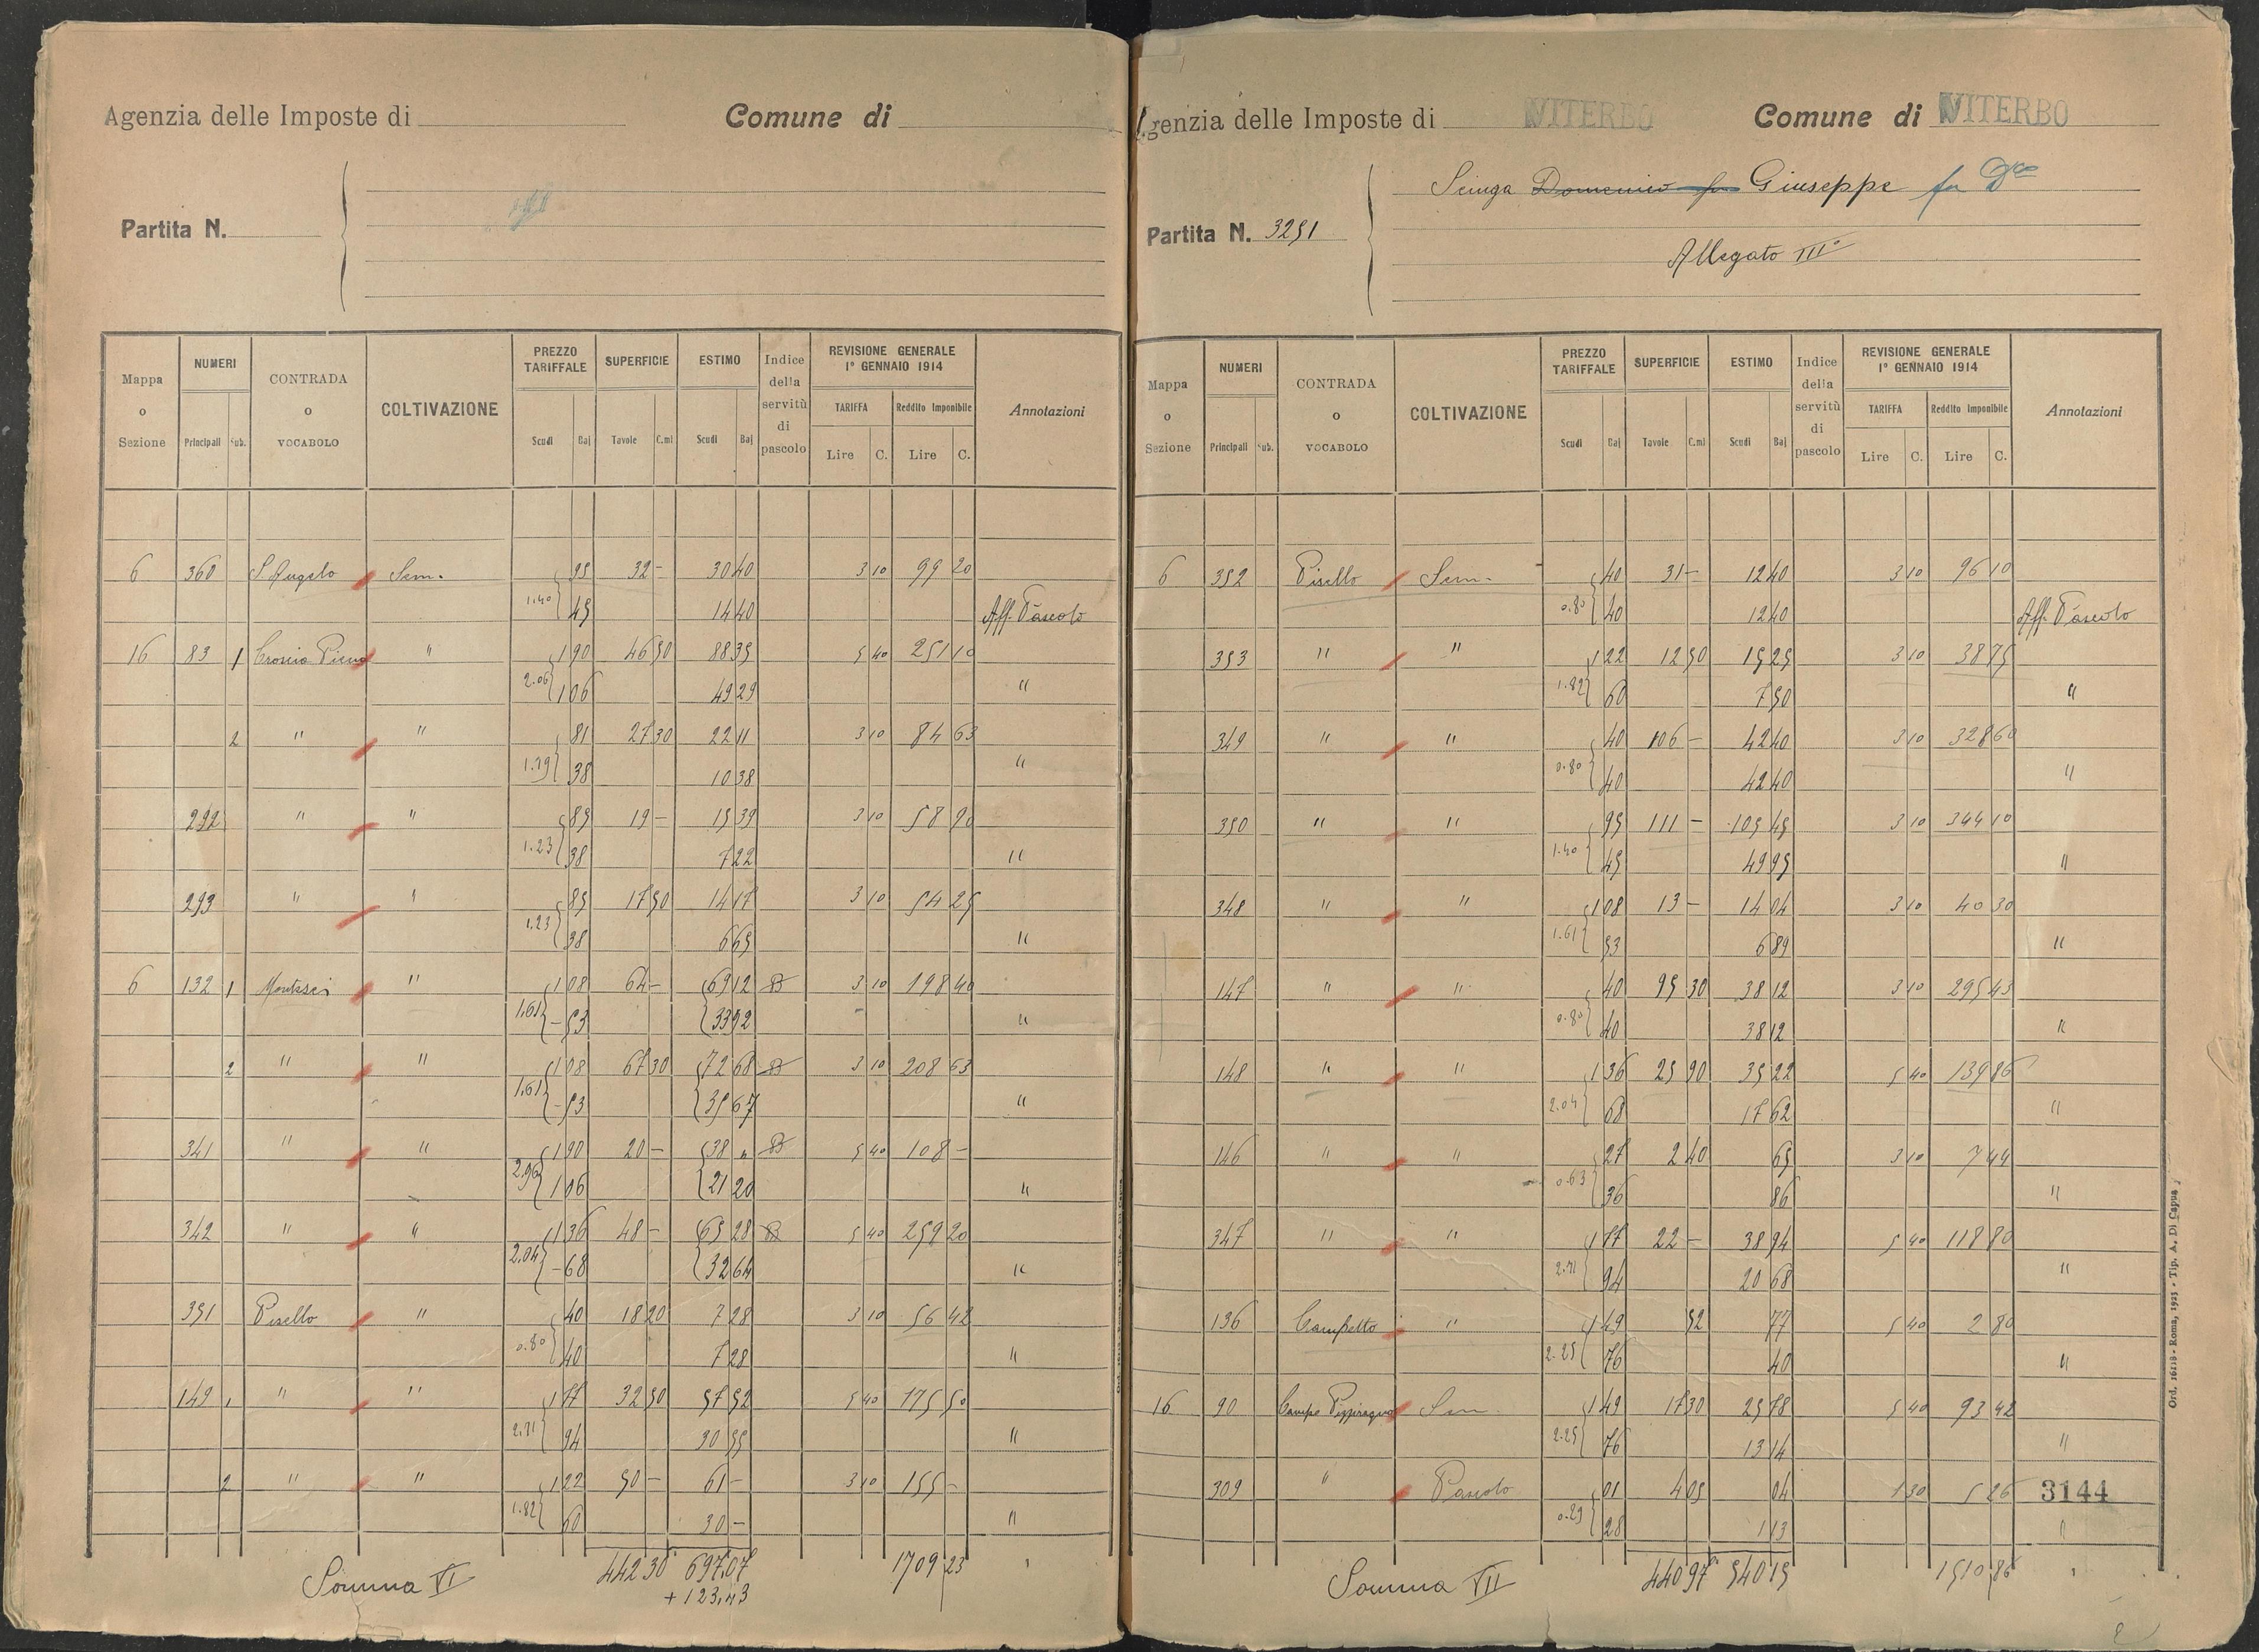 Agenzia delle Imposte di Comune di
Partita N.
Mappa o Sezione NUMERI Principali Sub. CONTRADA o VOCABOLO COLTIVAZIONE PREZZO TARIFFALE Scudi Baj SUPERFICIE Tavole C.mi ESTIMO Scudi Baj Indice della servitù di pascolo REVISIONE GENERALE 1° GENNAIO 1914 TARIFFA Lire C. Reddito Imponibile Lire C. Annotazioni
6 360 S. Angelo Sem. 95 32 - 30 40 3 10 99 20
1.40 45 14 40 Aff. Pascolo
16 83 1 " 1 90 46 50 88 35 5 40 251 10
2.96 1 06 49 29 "
2 " " 81 27 30 22 11 3 10 84 63
1.19 38 10 38 "
292 " " 85 19 - 15 39 3 10 58 90
1.23 38 7 22 "
293 " " 85 17 50 14 17 3 10 54 25
1.23 38 6 65 "
6 132 1 " 1 08 64 - 69 12 3 10 198 40
1.61 - 53 33 92 "
2 " " 1 08 67 30 72 68 3 10 208 63
1.61 - 53 35 67 "
341 " " 1 90 20 - 38 " 5 40 108 -
2.96 1 06 21 20 "
342 " " 1 36 48 - 65 28 5 40 259 20
2.04 - 68 32 64 "
351 Pisello " 40 18 20 7 28 3 10 56 42
0.80 40 7 28 "
149 1 " " 1 77 32 50 57 52 5 40 175 50
2.71 94 30 55 "
2 " " 1 22 50 - 61 - 3 10 155 -
1.82 60 30 - "
Somma VI 442 30 697,07 1709 23
+ 123,43
Agenzia delle Imposte di VITERBO Comune di VITERBO
Sciuga Domenico fu Giuseppe fu Dco
Partita N. 3251
Allegato III°
Mappa o Sezione NUMERI Principali Sub. CONTRADA o VOCABOLO COLTIVAZIONE PREZZO TARIFFALE Scudi Baj SUPERFICIE Tavole C.mi ESTIMO Scudi Baj Indice della servitù di pascolo REVISIONE GENERALE 1° GENNAIO 1914 TARIFFA Lire C. Reddito Imponibile Lire C. Annotazioni
6 352 Pisello Sem. 40 31 - 12 40 3 10 96 10
0.80 40 12 40 Aff. Pascolo
353 " " 1 22 12 50 15 25 3 10 38 75
1.82 60 7 50 "
349 " " 40 106 - 42 40 3 10 328 60
0.80 40 42 40 "
350 " " 95 111 - 105 45 3 10 344 10
1.40 45 49 95 "
348 " " 1 08 13 - 14 04 3 10 40 30
1.61 53 6 89 "
147 " " 40 95 30 38 12 3 10 295 43
0.80 40 38 12 "
148 " " 1 36 25 90 35 22 5 40 139 86
2.04 68 17 62 "
146 " " 27 2 40 65 3 10 7 44
0.63 36 86 "
347 " " 1 77 22 - 38 94 5 40 118 80
2.71 94 20 68 "
136 Campetto " 1 49 52 77 5 40 2 80
2.25 76 40 "
16 90 Campo Sem. 1 49 17 30 25 78 5 40 93 42
2.25 76 13 14 "
309 " Pascolo 01 4 05 04 1 30 5 26 3144
0.29 28 1 13 "
Somma VII 440 97 540 15 1510,86
Ord. 16218 - Roma, 1925 - Tip. A. Di Capua